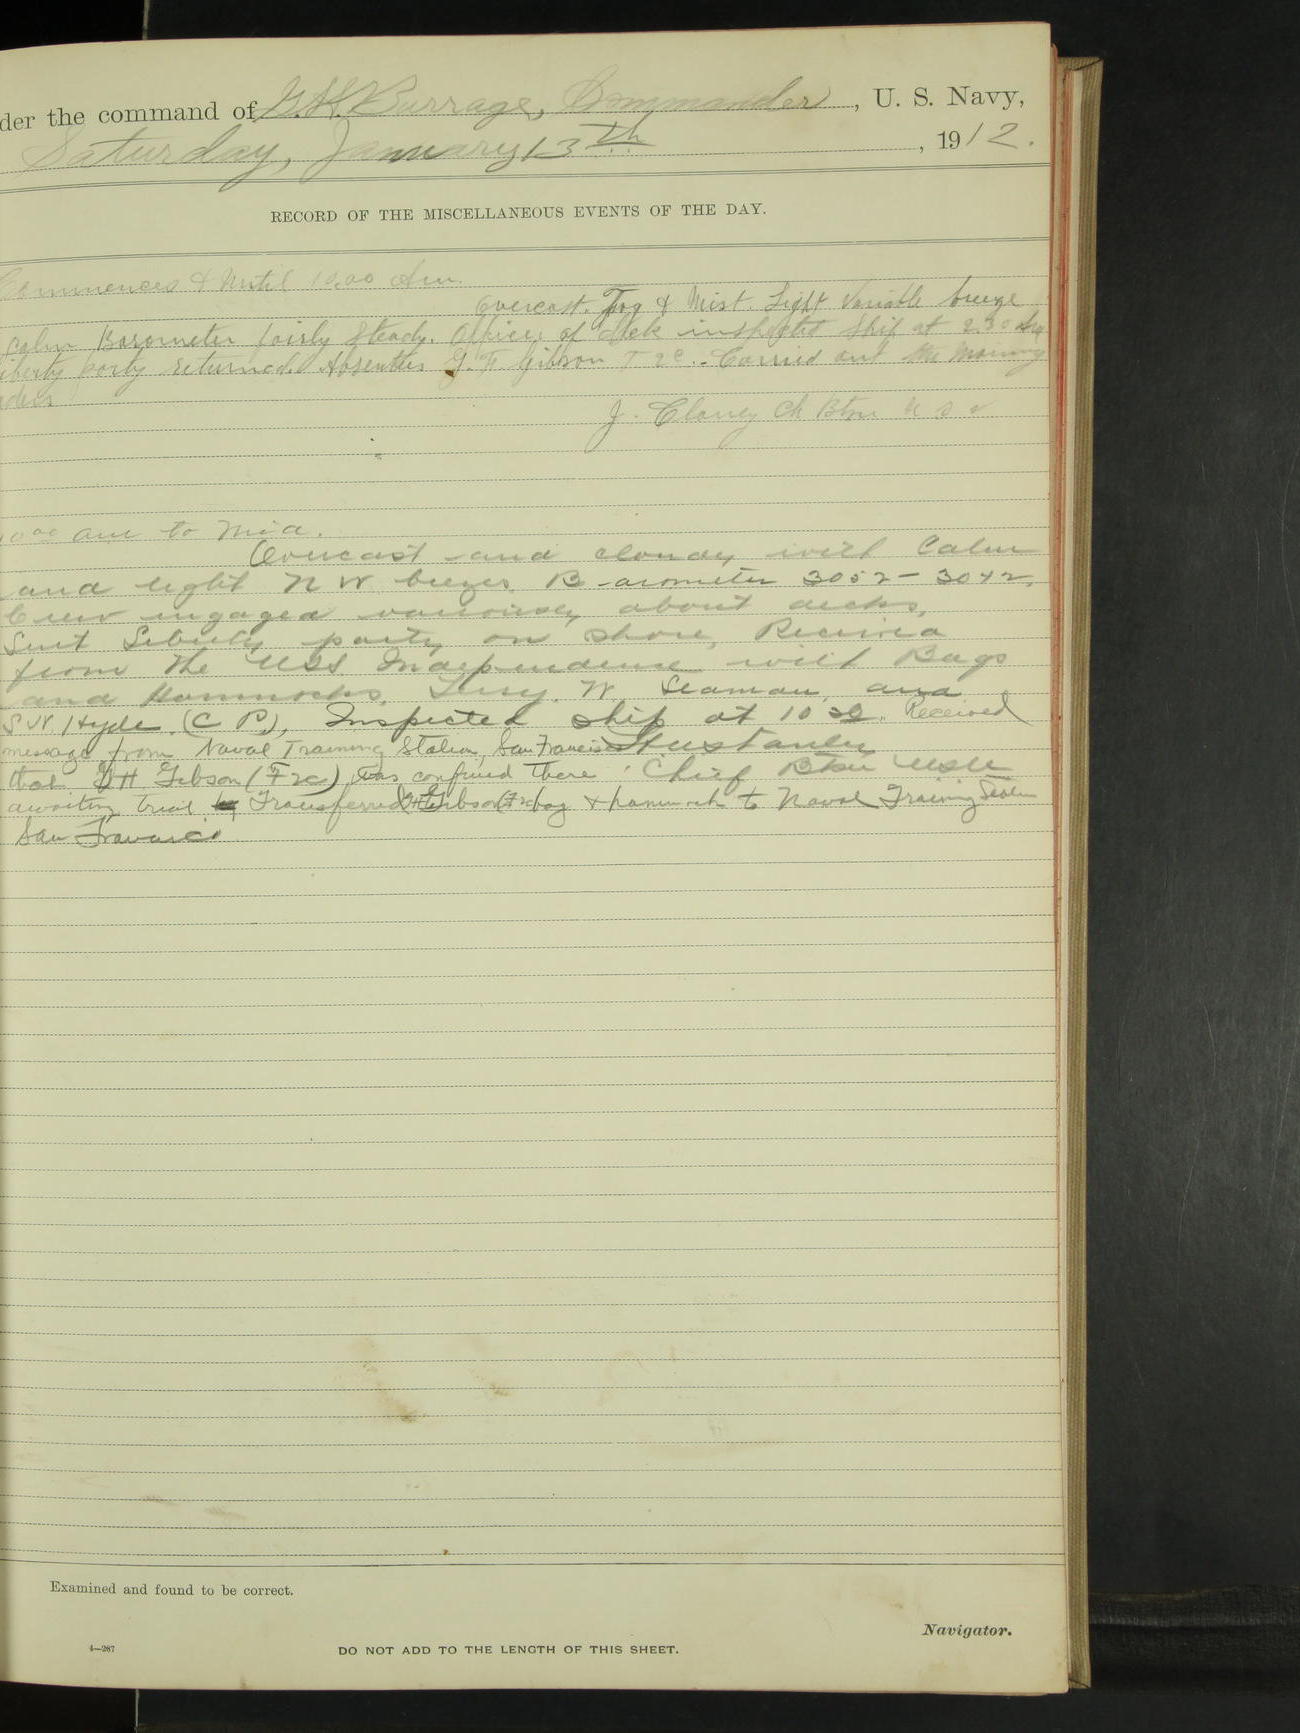 der the command of G. H. Burrage, Commander, U. S. Navy,
Saturday, January 13th, 1912.
RECORD OF THE MISCELLANEOUS EVENTS OF THE DAY.
Commences & Until 10.00 Am.
Overcast. Fog & Mist. Light Variable breeze
Calm Barometer fairly Steady. Officer of deck inspected Ship at 2.30 Am
iberty party returned. Absentees G. H Gibson F 2c. Carried out the Morning
ders
J. Clancy Ch Btsn U S N
10 00 am to Mid.
Overcast and cloudy with Calm
and light N W breezes. Barometer 3052 - 3042.
Crew engaged variously about decks,
Sent Liberty party on shore, Received
from the USS Independence with Bags
and Hammocks, W. Seaman, and
S W. Hyde. (C P), Inspected ship at 10 30. Received
message from Naval Training Station, San Francisco
that G H Gibson (F 2c) was confined there Chief Btsn USN
awaiting trial Transferred G H Gibson (F 2c) bag & hammock to Naval Training Station
San Francisco
Examined and found to be correct.
Navigator.
4—287
DO NOT ADD TO THE LENGTH OF THIS SHEET.